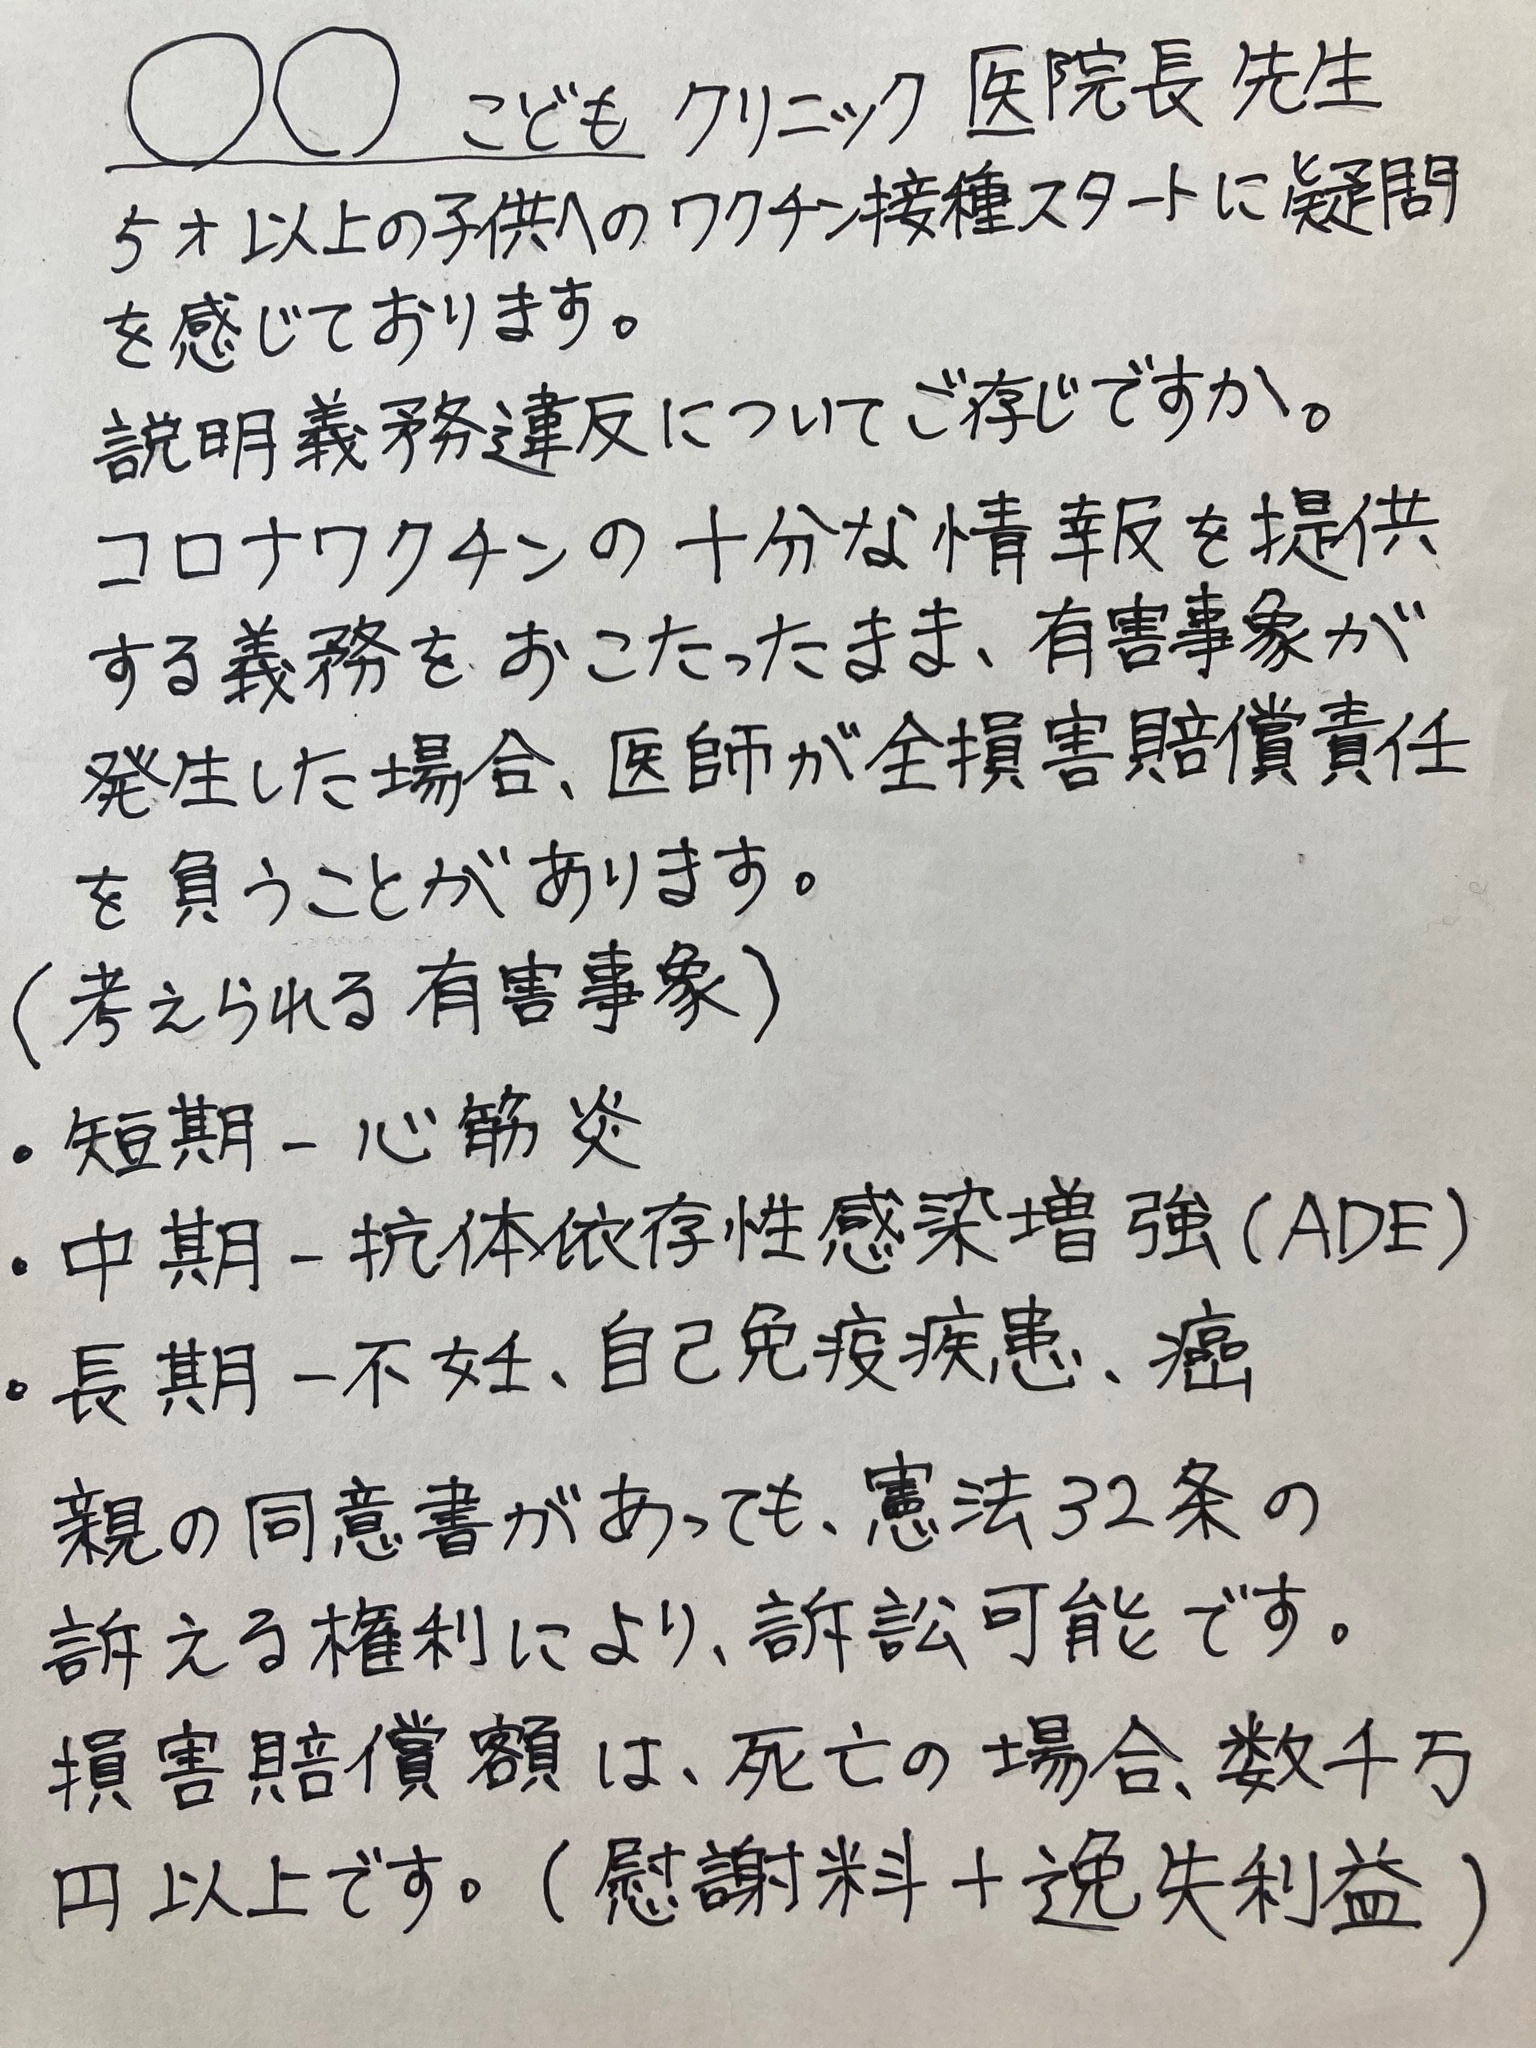 〇〇こどもクリニック 医院長 先生
5才以上の子供へのワクチン接種スタートに疑問
を感じております。
説明義務違反についてご存じですか。
コロナワクチンの十分な情報を提供
する義務をおこたったまま、有害事象が
発生した場合、医師が全損害賠償責任
を負うことがあります。
(考えられる有害事象)
・短期-心筋炎
・中期-抗体依存性感染増強(ADE)
・長期-不妊、自己免疫疾患、癌
親の同意書があっても、憲法32条の
訴える権利により、訴訟可能です。
損害賠償額は、死亡の場合、数千万
円以上です。(慰謝料+逸失利益)